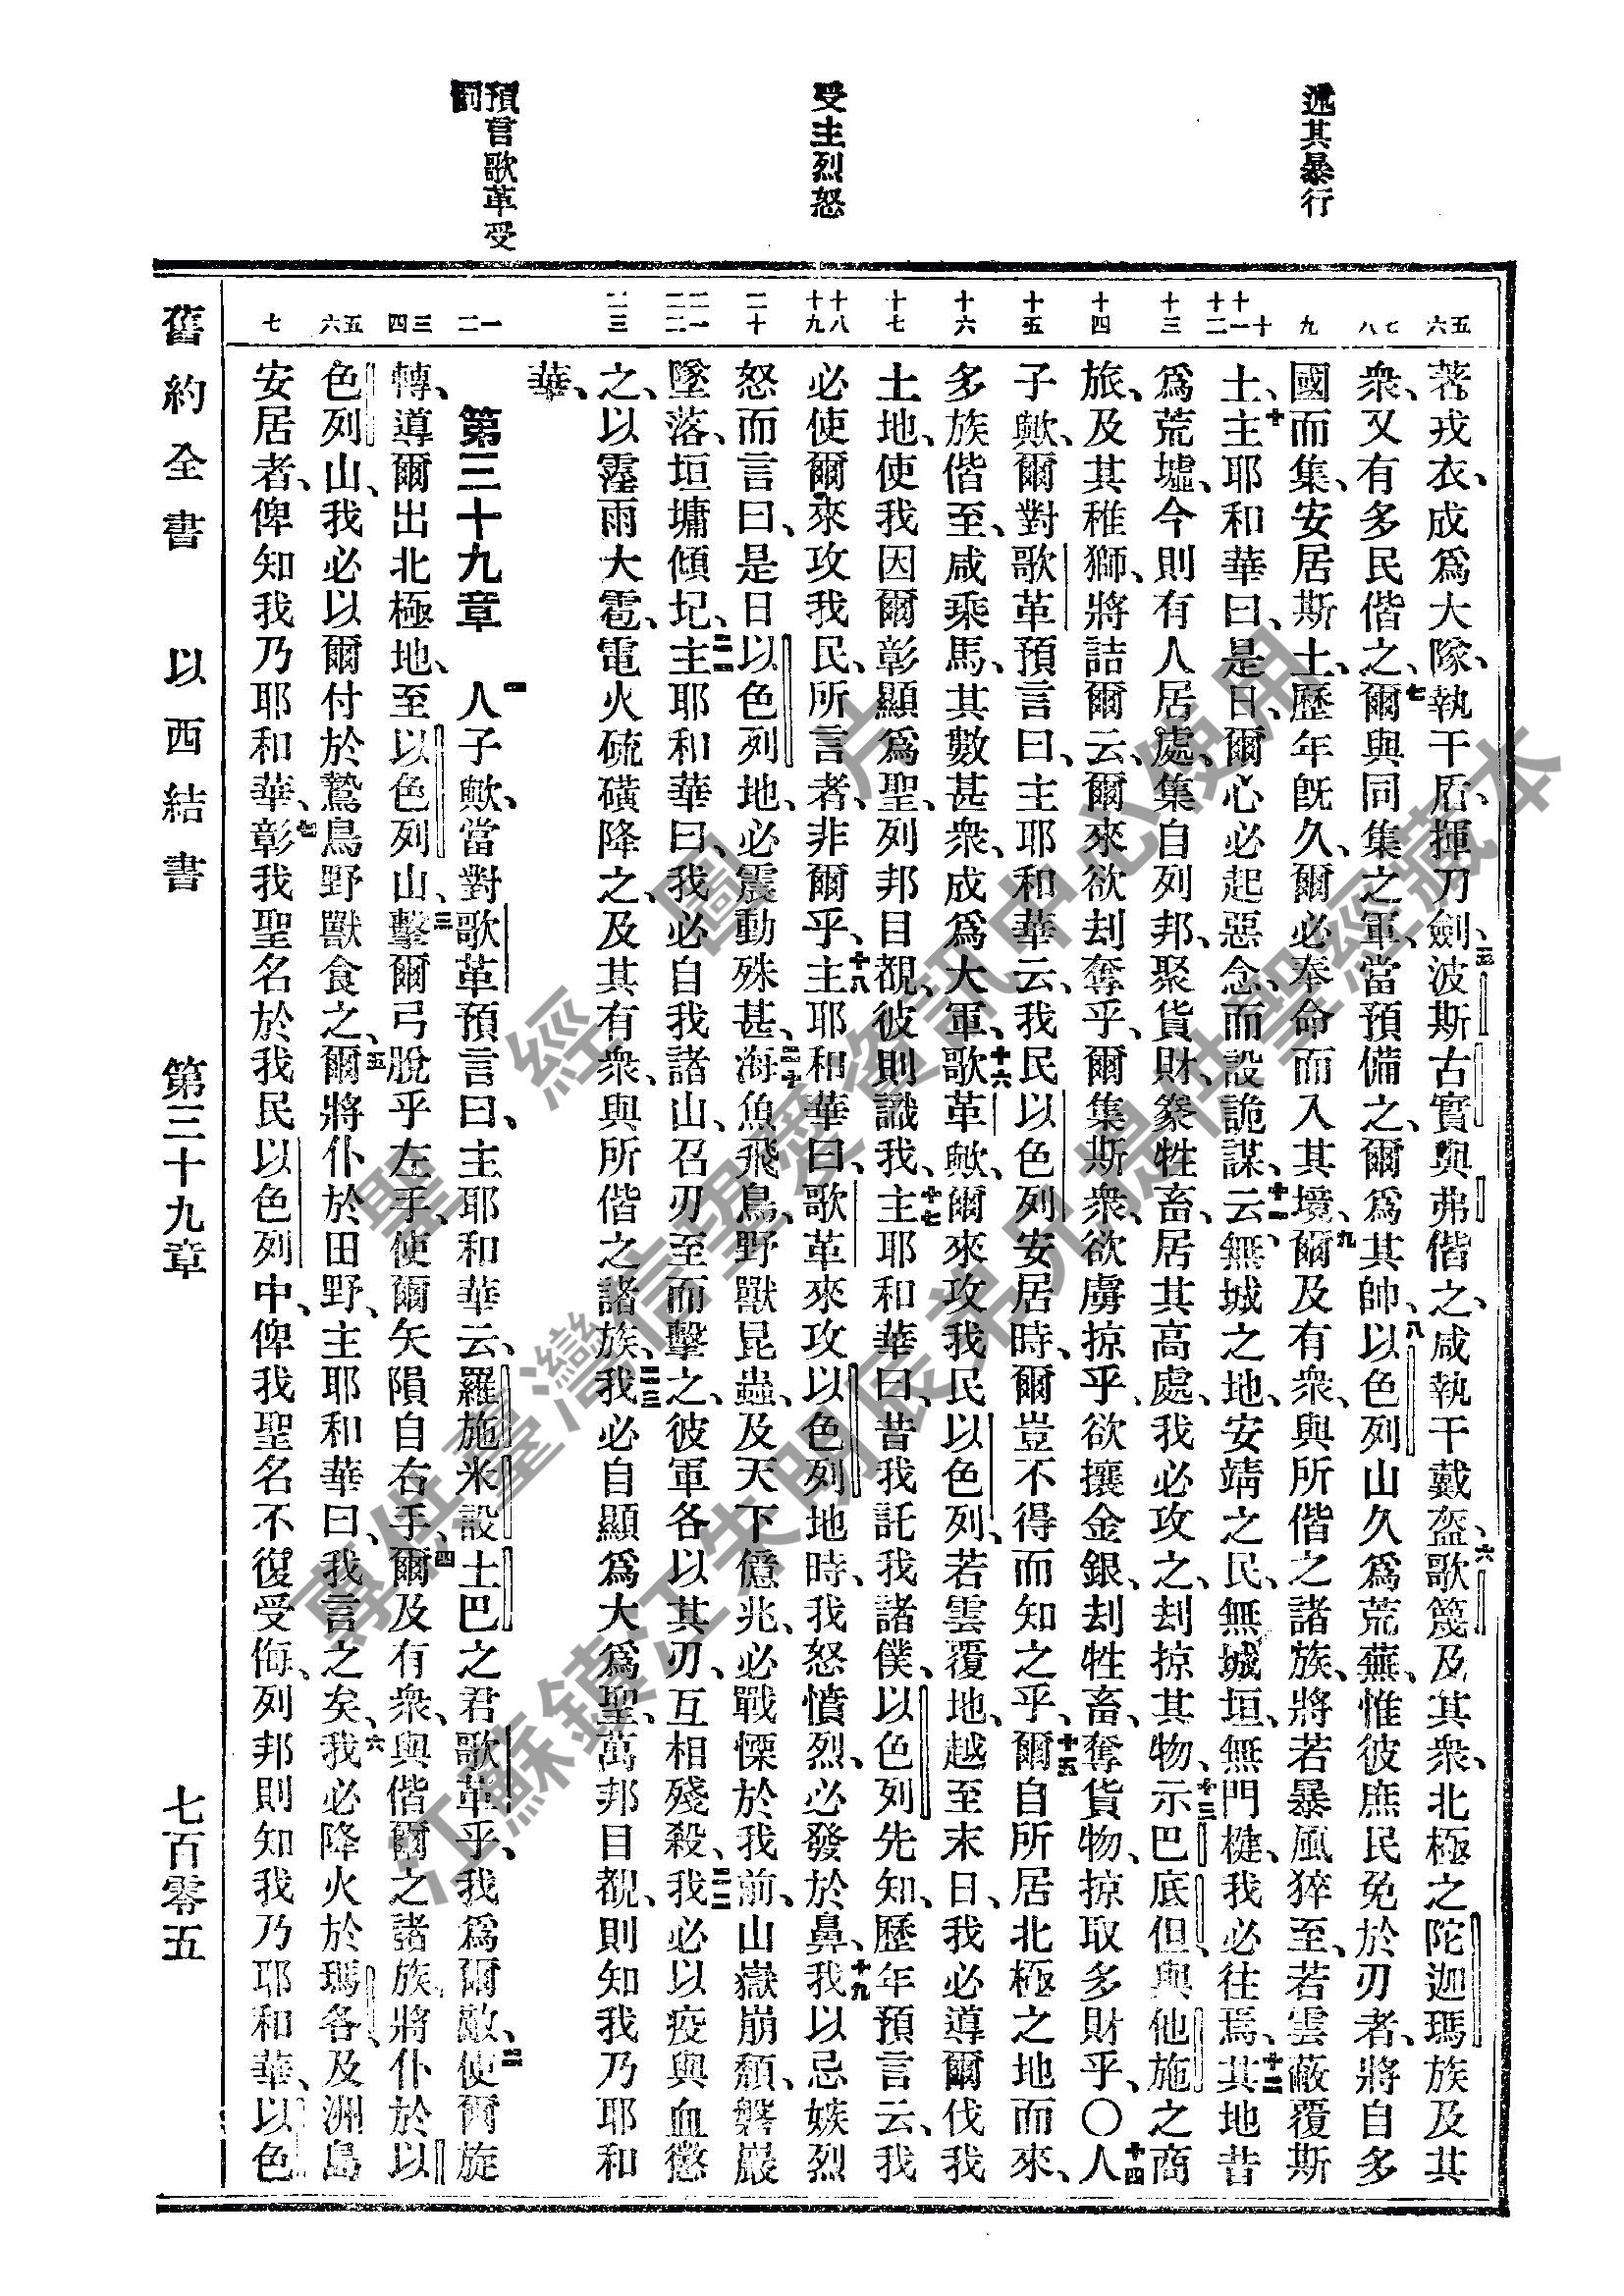 述其暴行
受主烈怒
預言歌革受
罰
五 六
七 八
九
十 十一 十二
十三
十四
十五
十六
十七
十八 十九
二十
二一 二二
二三
一 二
三 四
五 六
七
著戎衣、成爲大隊、執干盾、揮刀劍、五波斯古實與弗偕之、咸執干戴盔、六歌篾及其衆、北極之陀迦瑪族及其
衆、又有多民偕之、七爾與同集之軍、當預備之、爾爲其帥、八以色列山久爲荒蕪、惟彼庶民免於刃者、將自多
國而集、安居斯土、歷年旣久、爾必奉命而入其境、九爾及有衆、與所偕之諸族、將若暴風猝至、若雲蔽覆斯
土、十主耶和華曰、是日、爾心必起惡念、而設詭謀、十一云、無城之地、安靖之民、無城垣、無門楗、我必往焉、十二其地昔
爲荒墟、今則有人居處、集自列邦、聚貨財、豢牲畜、居其高處、我必攻之、刦掠其物、十三示巴底但、與他施之商
旅、及其稚獅、將詰爾云、爾來欲刦奪乎、爾集斯衆、欲虜掠乎、欲攘金銀、刦牲畜、奪貨物、掠取多財乎、○十四人
子歟、爾對歌革預言曰、主耶和華云、我民以色列安居時、爾豈不得而知之乎、十五爾自所居北極之地而來、
多族偕至、咸乘馬、其數甚衆、成爲大軍、十六歌革歟、爾來攻我民以色列、若雲覆地、越至末日、我必導爾伐我
土地、使我因爾彰顯爲聖、列邦目覩、彼則識我、十七主耶和華曰、昔我託我諸僕、以色列先知、歷年預言云、我
必使爾來攻我民、所言者、非爾乎、十八主耶和華曰、歌革來攻以色列地時、我怒憤烈、必發於鼻、十九我以忌嫉烈
怒而言曰、是日以色列地、必震動殊甚、二十海魚飛鳥、野獸昆蟲、及天下億兆、必戰慄於我前、山嶽崩頹、磐巖
墜落、垣墉傾圮、二一主耶和華曰、我必自我諸山、召刃至而擊之、彼軍各以其刃、互相殘殺、二二我必以疫與血懲
之、以霪雨大雹、電火硫磺降之、及其有衆、與所偕之諸族、二三我必自顯爲大爲聖、萬邦目覩、則知我乃耶和
華、
第三十九章 一人子歟、當對歌革預言曰、主耶和華云、羅施米設土巴之君歌革乎、我爲爾敵、二使爾旋
轉、導爾出北極地、至以色列山、三擊爾弓脫乎左手、使爾矢隕自右手、四爾及有衆、與偕爾之諸族、將仆於以
色列山、我必以爾付於鷙鳥野獸食之、五爾將仆於田野、主耶和華曰、我言之矣、六我必降火於瑪各、及洲島
安居者、俾知我乃耶和華、七彰我聖名於我民以色列中、俾我聖名不復受侮、列邦則知我乃耶和華、以色
舊約全書 以西結書 第三十九章 七百零五
聖經圖片
專供臺灣信望愛資訊中心使用
江蘇鎮江朱明辰弟兄提供聖經藏本